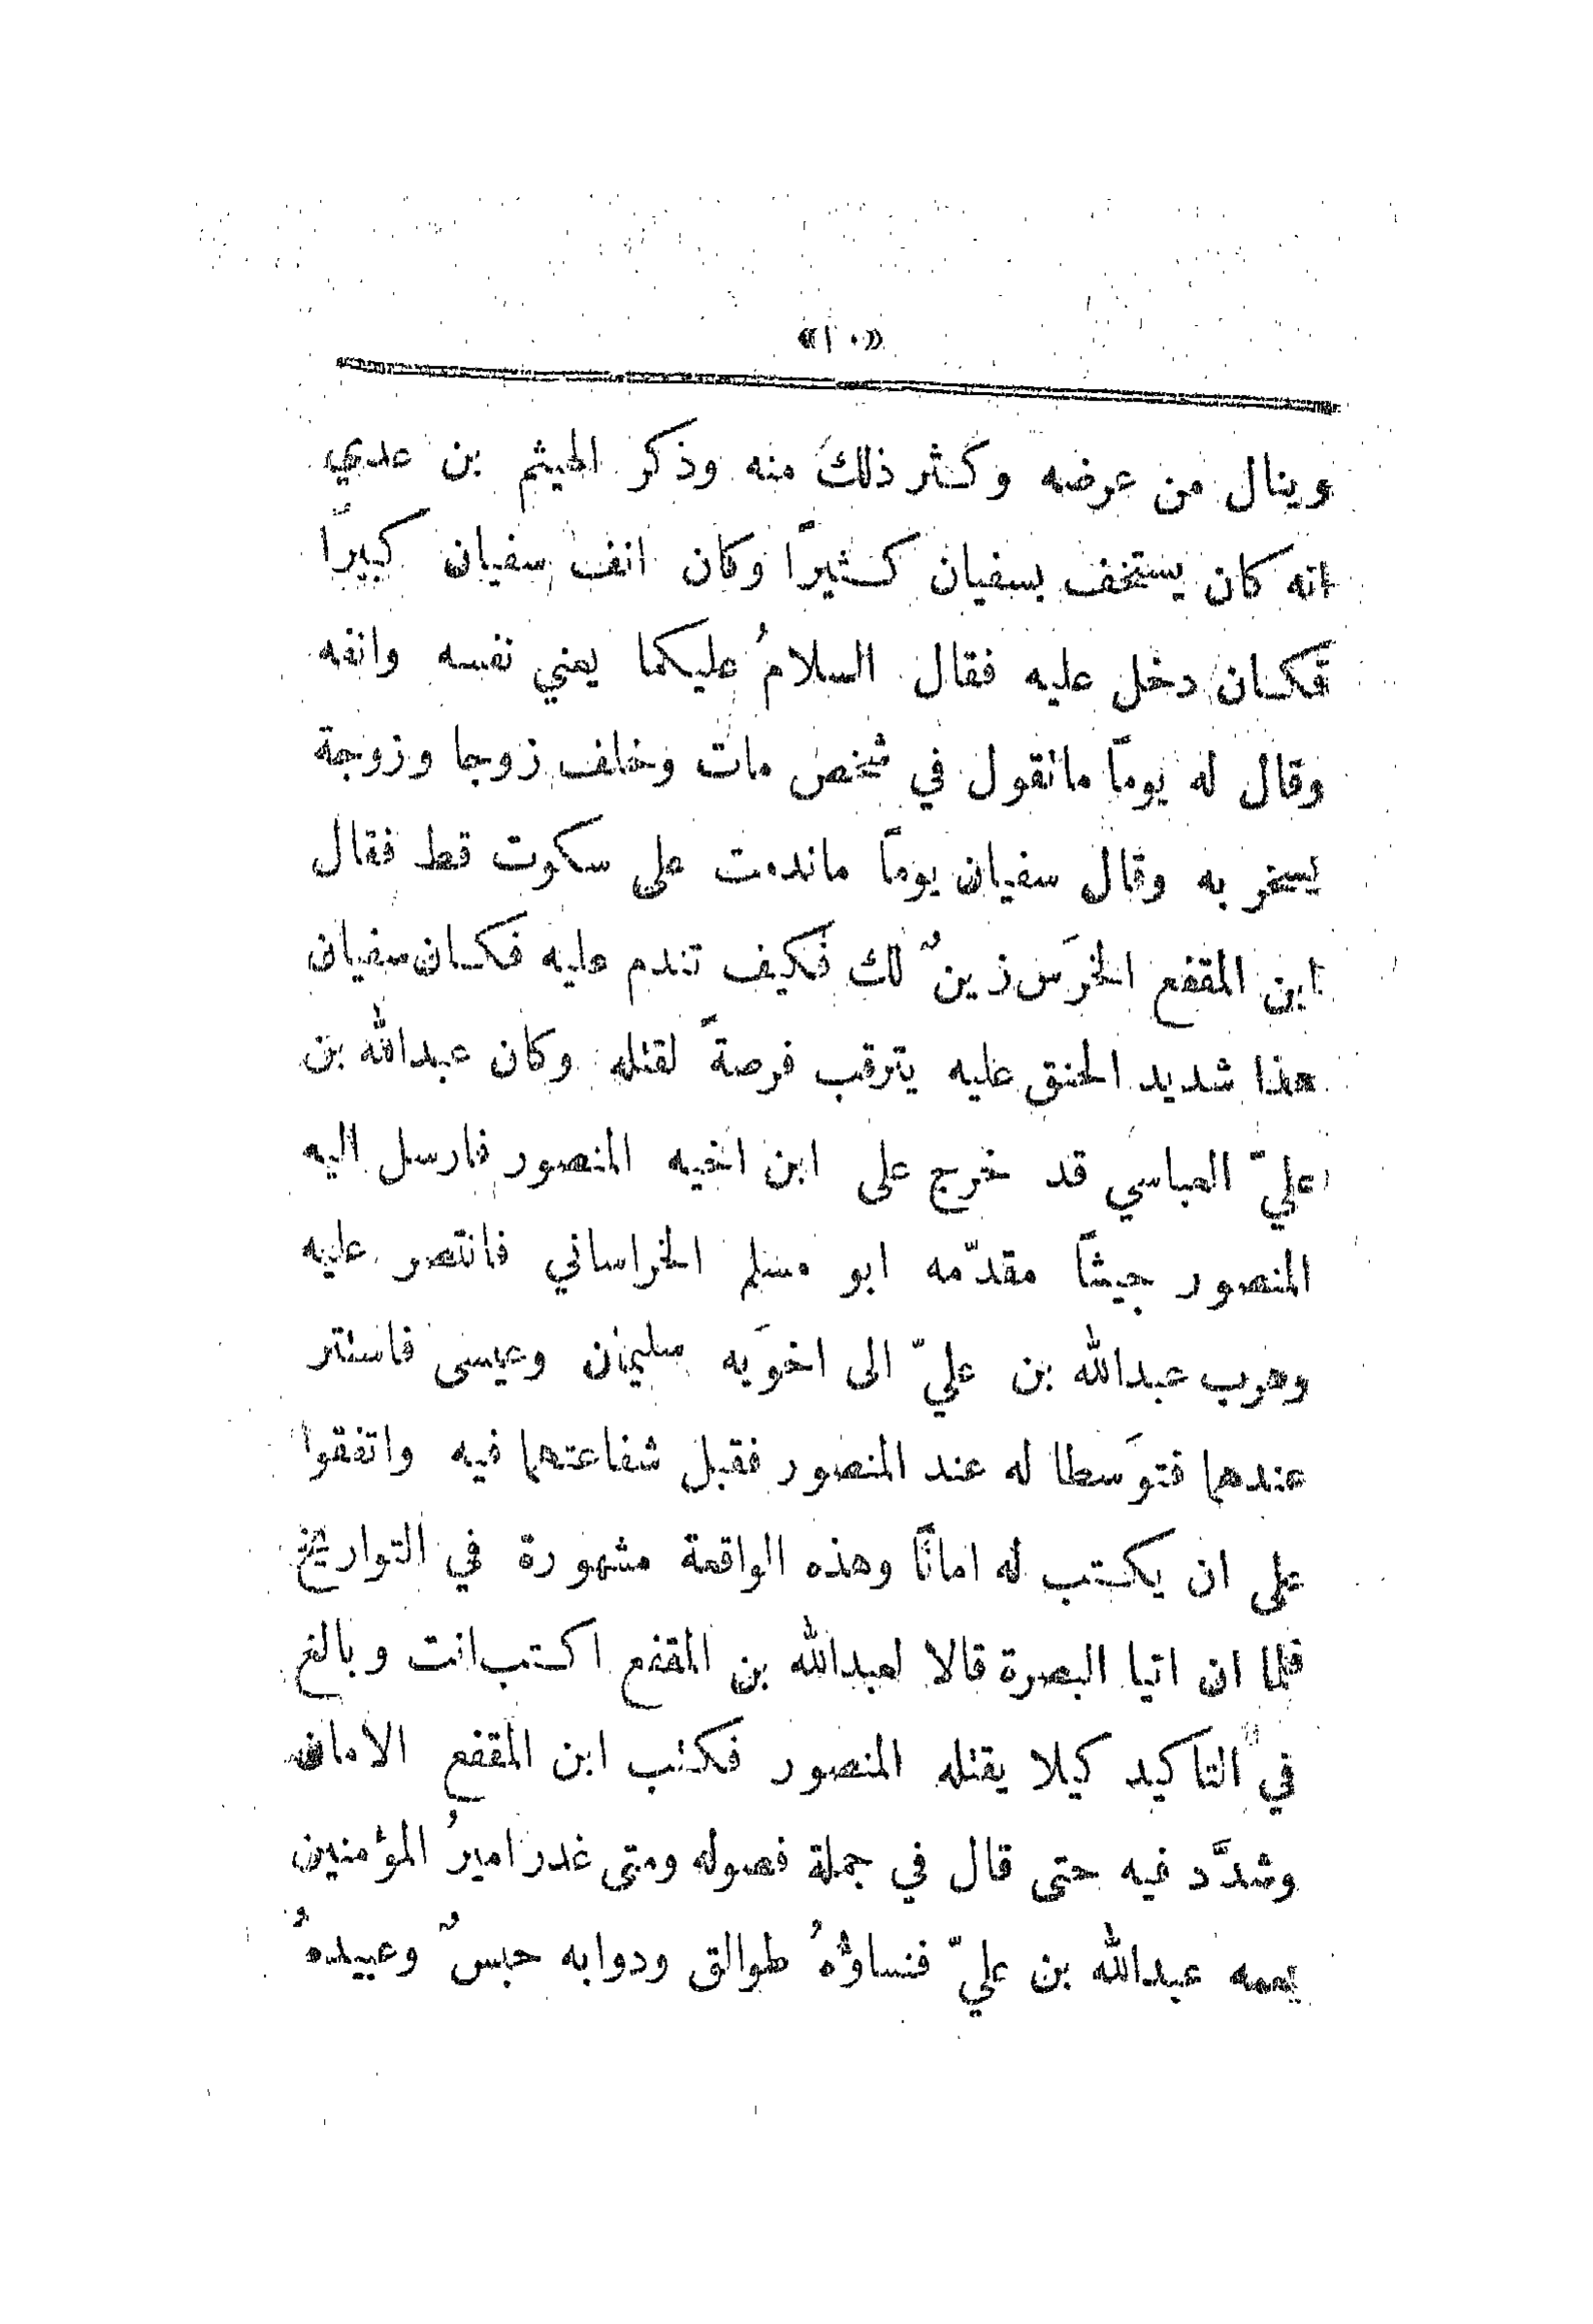 «١٠»
وينال من عرضه وكثر ذلك منه وذكر الهيثم بن عدي
انه كان يستخف بسفيان كثيرًا وكان انف سفيان كبيرًا
فكان دخل عليه فقال السلامُ عليكما يعني نفسه وانفه
وقال له يومًا ماتقول في شخص مات وخلف زوجا وزوجة
يسخر به وقال سفيان يومًا ماندمت على سكوت قط فقال
ابن المقفع الخرَس زينٌ لك فكيف تندم عليه فكان سفيان
هذا شديد الحنق عليه يترقب فرصةً لقتله وكان عبدالله بن
عليّ العباسي قد خرج على ابن اخيه المنصور فارسل اليه
المنصور جيشًا مقدّمه ابو مسلم الخراساني فانتصر عليه
وهرب عبدالله بن عليّ الى اخوَيه سليمان وعيسى فاستتر
عندهما فتوَسطا له عند المنصور فقبل شفاعتهما فيه واتفقوا
على ان يكتب له امانًا وهذه الواقعة مشهورة في التواريخ
فلما ان اتيا البصرة قالا لعبدالله بن المقفع اكتب انت وبالغ
في التاكيد كيلا يقتله المنصور فكتب ابن المقفع الامان
وشدَّد فيه حتى قال في جملة فصوله ومتى غدر اميرُ المؤمنين
بعمه عبدالله بن عليّ فنساؤهُ طوالق ودوابه حبسٌ وعبيدهُ